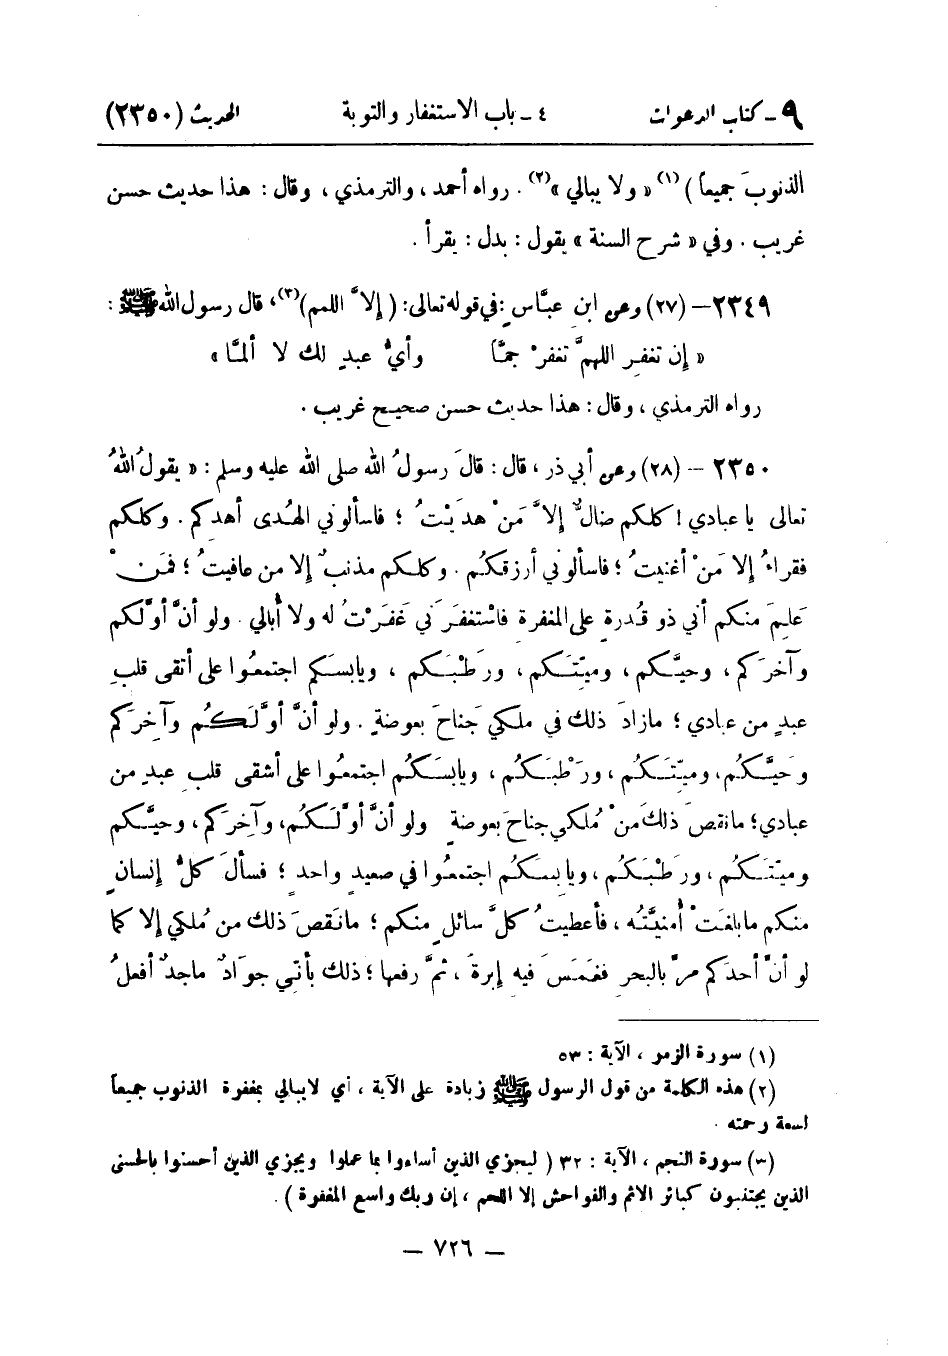 ٩ - كتاب الدعوات ٤ - باب الاستغفار والتوبة الحديث (٢٣٥٠)
الذنوبَ جميعاً ) (١) « ولا يبالي » (٢) . رواه أحمد ، والترمذي ، وقال : هذا حديث حسن
غريب . وفي « شرح السنة » يقول : بدل : يقرأ .
٢٣٤٩ – (٢٧) وعن ابنِ عبَّاسٍ : في قوله تعالى : ( إلاَّ اللمم ) (٣) ، قال رسول الله ﷺ :
« إن تغفرِ اللهمَّ تغفرْ جمَّا وأيُّ عبدٍ لك لا ألمَّا »
رواه الترمذي ، وقال : هذا حديث حسن صحيح غريب .
٢٣٥٠ – (٢٨) وعن أبي ذر ، قال : قالَ رسولُ الله صلى الله عليه وسلم : « يقولُ اللهُ
تعالى يا عبادي ! كلكم ضالٌّ إلاَّ مَنْ هدَيْتُ ؛ فاسألوني الهُدى أهدِكم . وكلكم
فقراءُ إلا مَنْ أغنيتُ ؛ فاسألوني أرزقكُم . وكلكم مذنبٌ إلا من عافيتُ ؛ فمَنْ
عَلِمَ منكم أني ذو قُدرةٍ على المغفرة فاسْتغفَرَني غَفَرْتُ له ولا أُبالي . ولو أنَّ أوَّلكم
وآخرَكم ، وحيَّكم ، وميِّتَكم ، ورَطْبَكم ، ويابسَكم اجتمعُوا على أتقى قلبِ
عبدٍ من عبادي ؛ مازادَ ذلك في ملكي جَناحَ بعوضةٍ . ولو أنَّ أوَّلَكُم وآخِرَكم
وحَيَّكُم ، وميِّتَكُم ، ورَطْبَكُم ، ويابسَكُم اجتمعُوا على أشقى قلبِ عبدٍ من
عبادي ؛ مانقصَ ذلكَ منْ مُلكي جناحَ بعوضةٍ ولو أنَّ أوَّلَكُم ، وآخرَكم ، وحيَّكم
وميِّتَكُم ، ورَطْبَكُم ، ويابسَكُم اجتمعُوا في صعيدٍ واحدٍ ؛ فسألَ كلُّ إنسانٍ
منكم مابلغَتْ أُمنيَّتُه ، فأعطيتُ كلَّ سائلٍ منكم ؛ مانَقصَ ذلك من مُلكي إلا كما
لو أنَّ أحدَكم مرَّ بالبحرِ فغمَسَ فيه إبرةً ، ثمَّ رفعها ؛ ذلك بأنّي جوادٌ ماجدٌ أفعلُ
(١) سورة الزمر ، الآية : ٥٣
(٢) هذه الكلمة من قول الرسول ﷺ زيادة على الآية ، أي لايبالي بمغفرة الذنوب جميعاً
لسعة رحمته .
(٣) سورة النجم ، الآية : ٣٢ ( ليجزي الذين أساءوا بما عملوا ويجزي الذين أحسنوا بالحسنى
الذين يجتنبون كبائر الاثم والفواحش إلا اللمم ، إن ربك واسع المغفرة ) .
– ٧٢٦ –